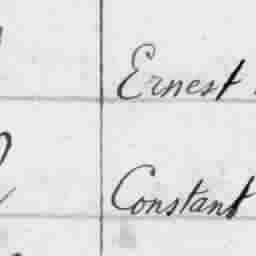 Ernest
Constant